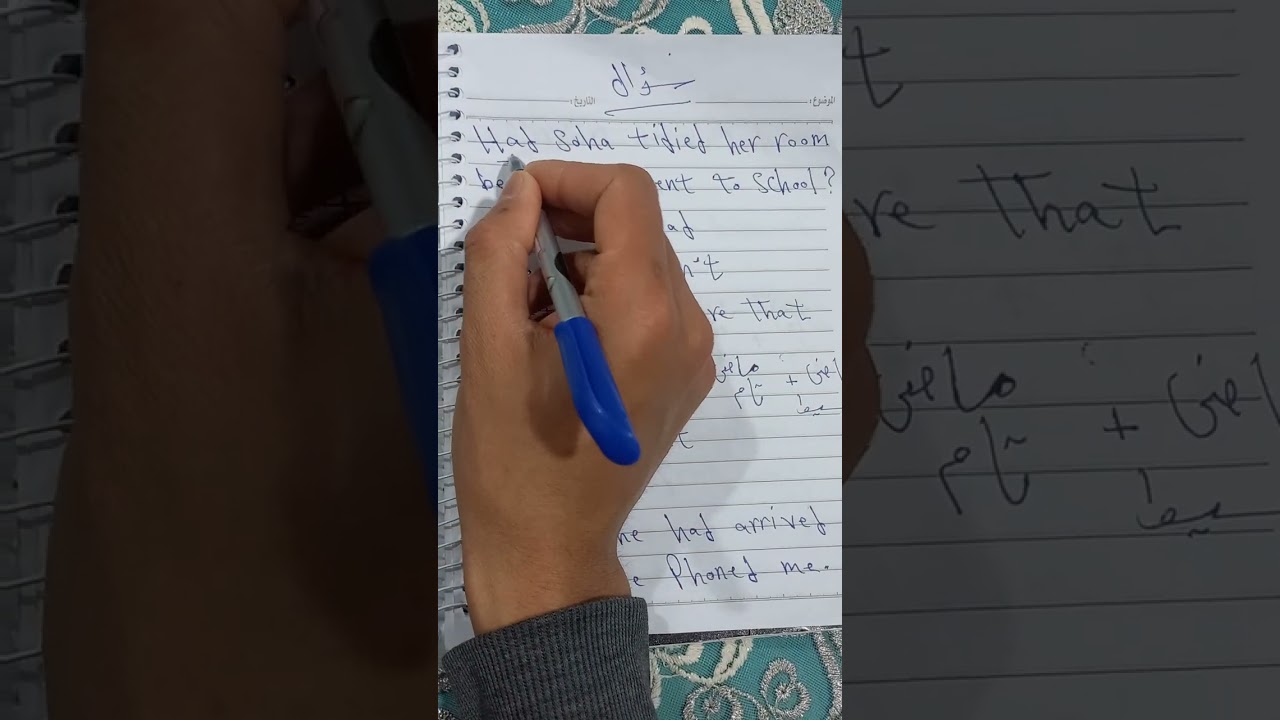 سؤال
الموضوع: التاريخ:
Had Soha tidied her room
be ent to school?
ad
n't
re that
ماضى تام + ماضى بسيط
t
he had arrived
e Phoned me.